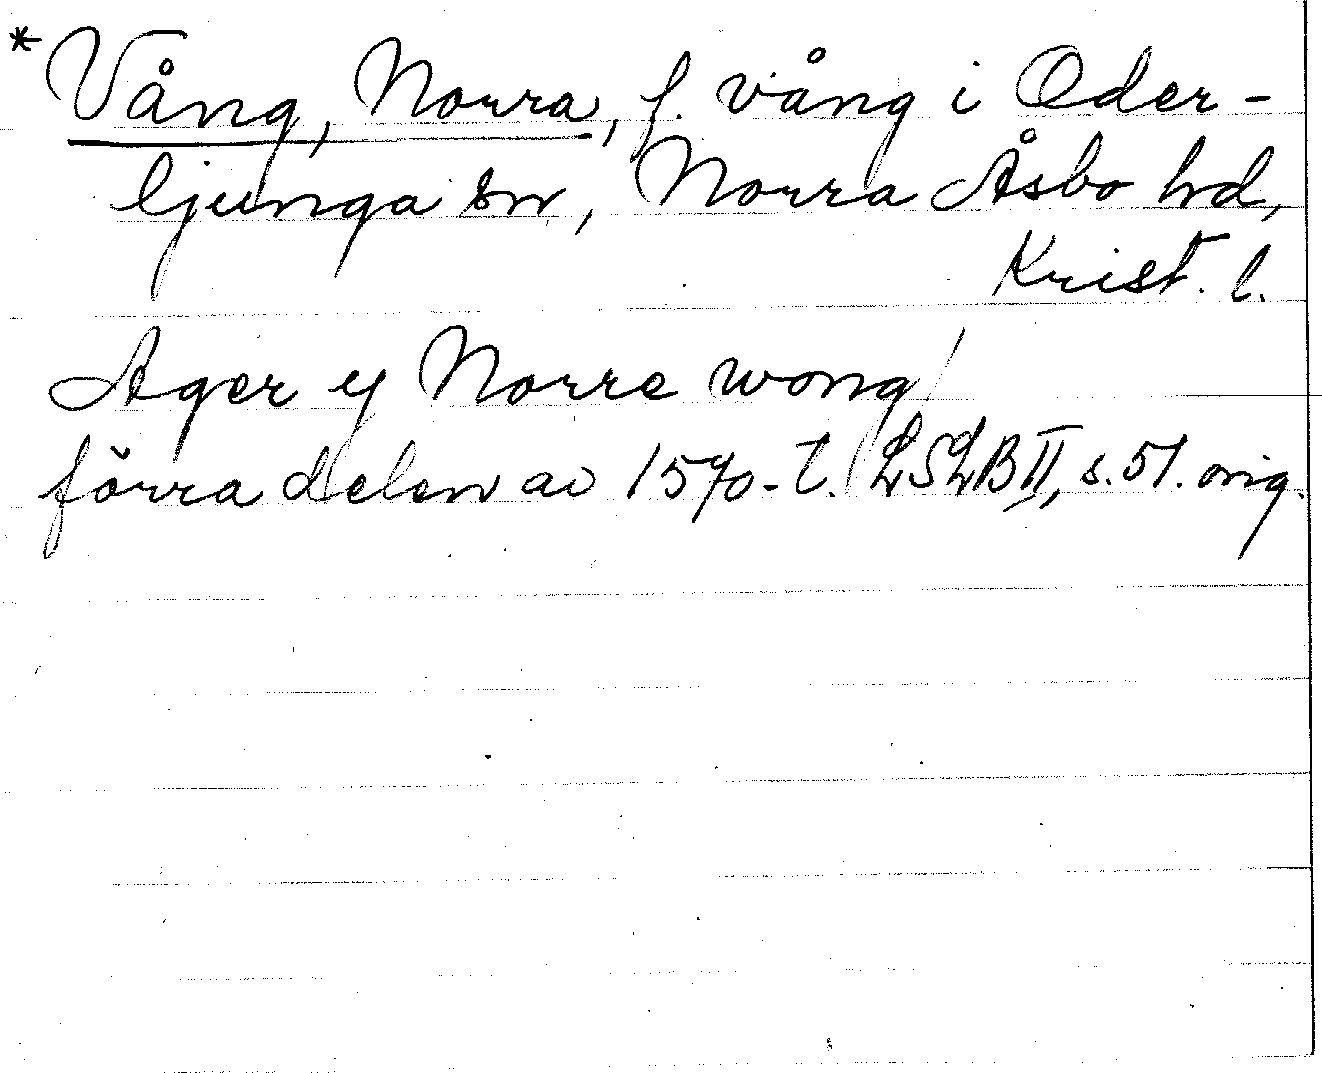 *Vång, Norra, f. vång i Oder-
ljunga sn, Norra Åsbo hd,
Krist. l.
Ager y Norre wong/
förra delen av 1570-t. LSLB II, s. 51. orig.